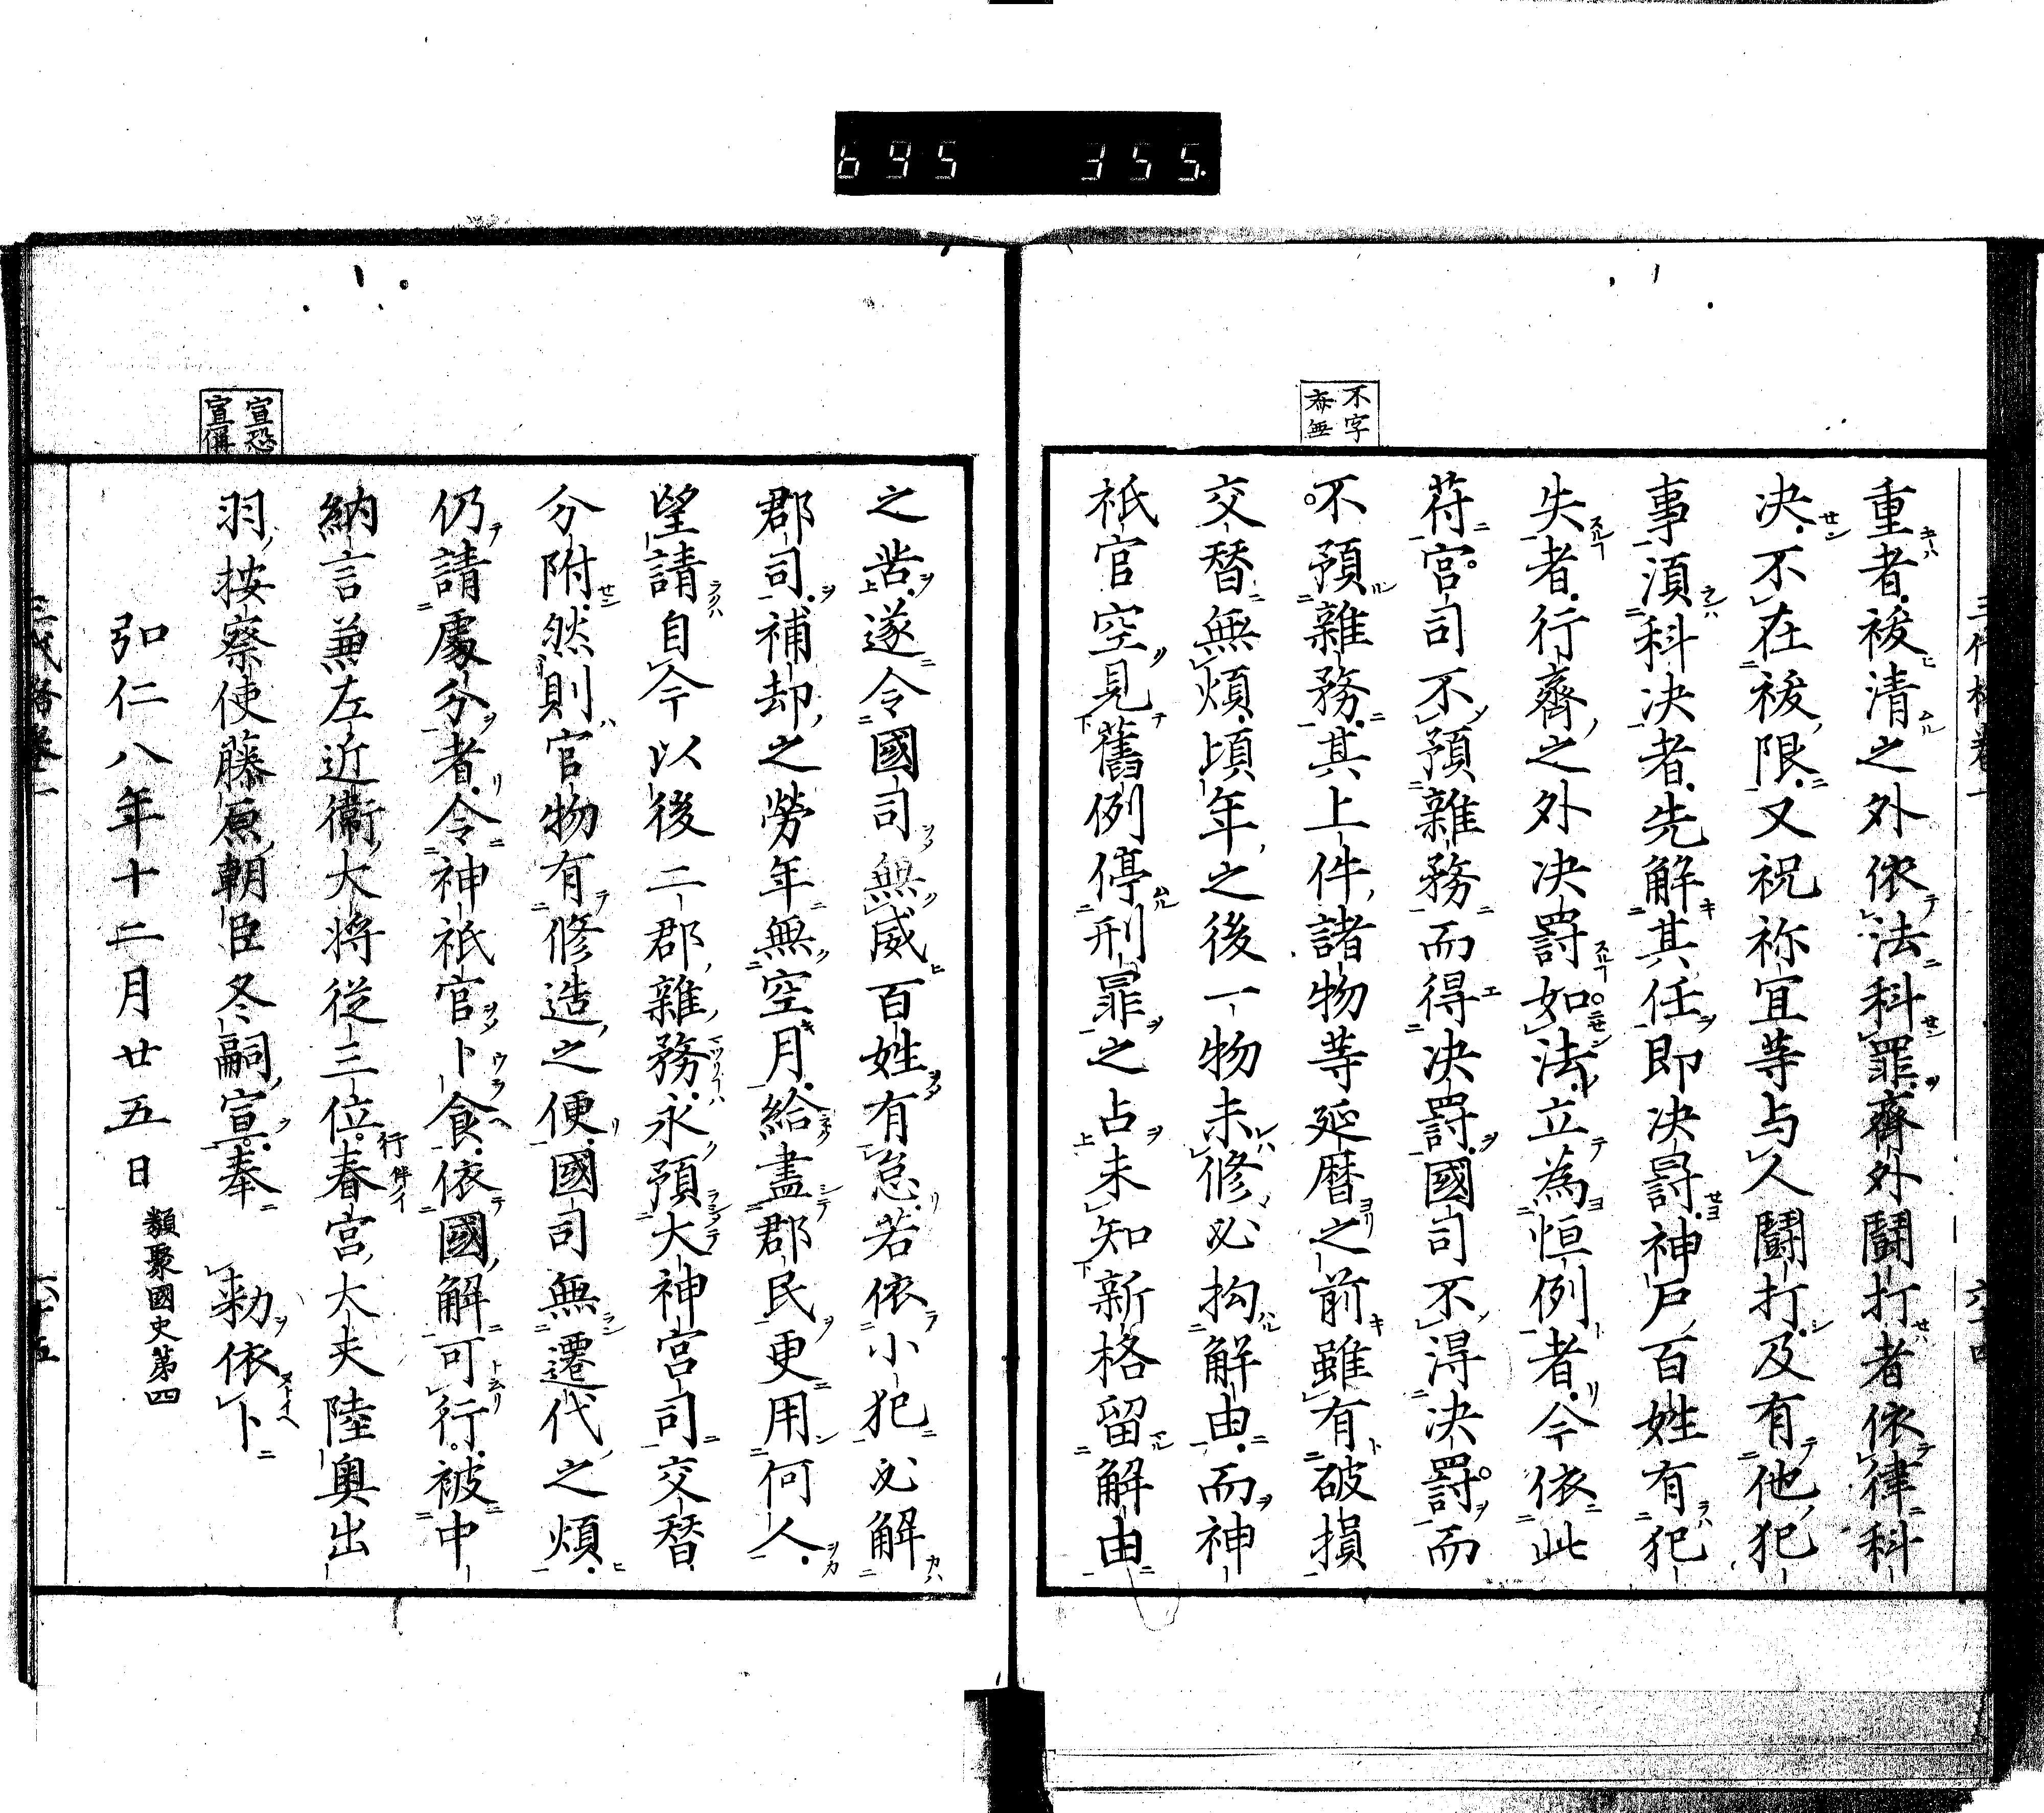 695 355.
三代格卷一 六十四
不字
恭無
重者祓清之外依法科罪齋外鬪打者依律科
决不在祓限又祝祢宜等与人鬪打及有他犯
事湏科决者先解其任即决罸神戸百姓有犯
失者行齋之外决罸如法立為恒例者今依此
苻宮司不預雜務而得决罸國司不淂决罸而
不預雜務其上件諸物等延暦之前雖有破損
交替無煩頃年之後一物未修必拘解由而神
祇官空見舊例停刑罪之占未知新格留解由
之苦遂令國司無威百姓有怠若依小犯必解
郡司補却之勞年無空月給盡郡民更用何人
望請自今以後二郡雜務永預大神宮司交替
分附然則官物有修造之便國司無遷代之煩
仍請處分者令神祇官卜食依國解可行被中
行件イ
納言兼左近衞大将従三位春宮大夫陸奥出
宣恐
宣偁
羽按察使藤原朝臣冬嗣宣奉 勅依卜
弘仁八年十二月廿五日 類聚國史第四
三代格卷一 六十五